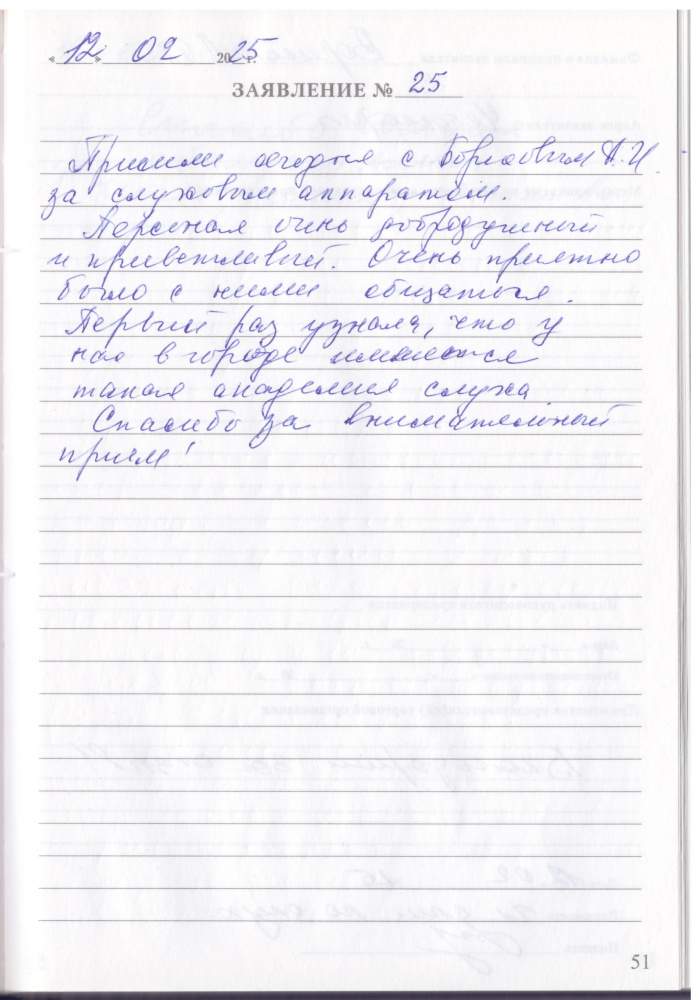 « 12 » 02 2025 г.
ЗАЯВЛЕНИЕ № 25
Пришли сегодня с А.И.
за слуховым аппаратом.
Персонал очнь добродушный
и приветливый. Очень приятно
было с ними общаться.
Первый раз узнала, что у
нас в городе имеется
такая академия слуха
Спасибо за внимательный
прием!
51